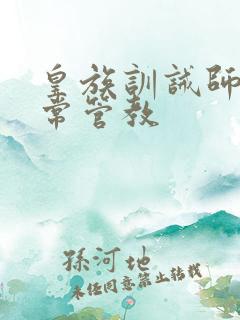 皇族訓誡師
常管教
孫河地
未经同意禁止转载